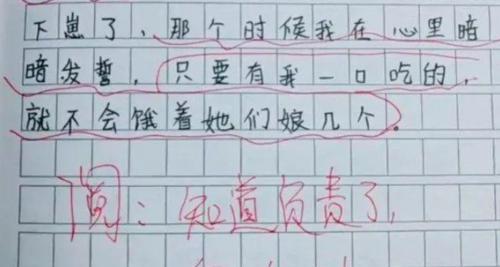 下崽了，那个时候我在心里暗
暗发誓，只要有我一口吃的，
就不会饿着她们娘几个。
阅：知道负责了，